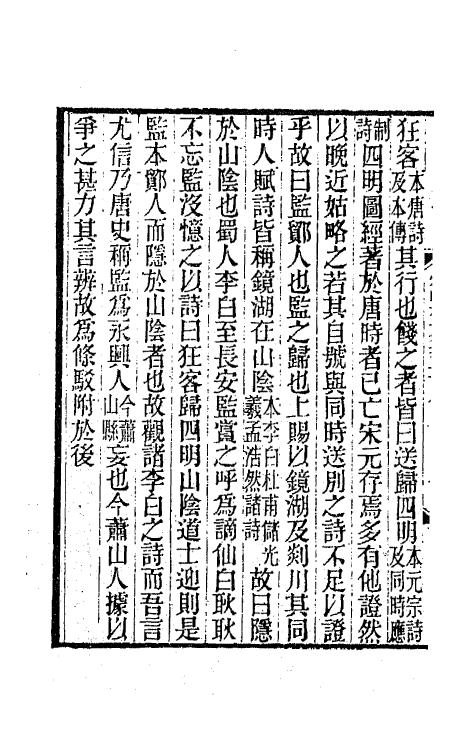 狂客本唐詩及本傳其行也餞之者皆曰送歸四明本元宗詩及同時應
制詩四明圖經著於唐時者已亡宋元存焉多有他證然
以晚近姑略之若其自號與同時送別之詩不足以證
乎故曰監鄞人也監之歸也上賜以鏡湖及剡川其同
時人賦詩皆稱鏡湖在山陰本李白杜甫儲光羲孟浩然諸詩故曰隱
於山陰也蜀人李白至長安監賞之呼爲謫仙白耿耿
不忘監沒憶之以詩曰狂客歸四明山陰道士迎則是
監本鄞人而隱於山陰者也故觀諸李白之詩而吾言
尤信乃唐史稱監爲永興人今蕭山縣妄也今蕭山人據以
爭之甚力其言辨故爲條駁附於後